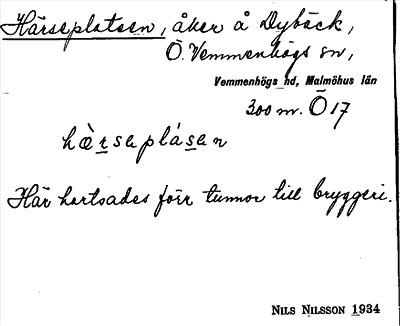 Härseplatsen, åker å Dybäck,
Ö. Vemmenhögs sn,
Vemmenhögs hd, Malmöhus län
300 m. Ö 17
hæ̀rsaplásan
Här hartsades förr tunnor till bryggeri.
NILS NILSSON 1934